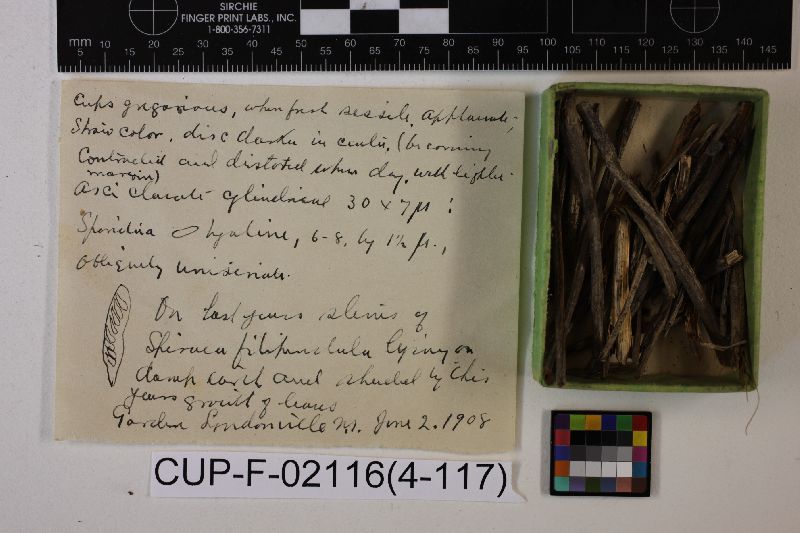 SIRCHIE
FINGER PRINT LABS., INC.
1-800-356-7311
mm 5 10 20 30 40 50 60 70 80 90 100 105 110 115 120 125 130 135 140 145
Cups gregarious, when fresh sessile, applanate,
Straw color, disc darker in center, (becoming
Contracted and distorted when dry, with lighter
margin)
Asci clavate cylindrical 30 x 7 µ :
Sporidia hyaline, 6-8, by 1½ µ.,
Obliquely uniseriate.
On last years stems of
Spiraea filipendula lying on
damp earth and shaded by this
years growth of leaves
Garden Loudonville N.Y. June 2. 1908
CUP-F-02116(4-117)